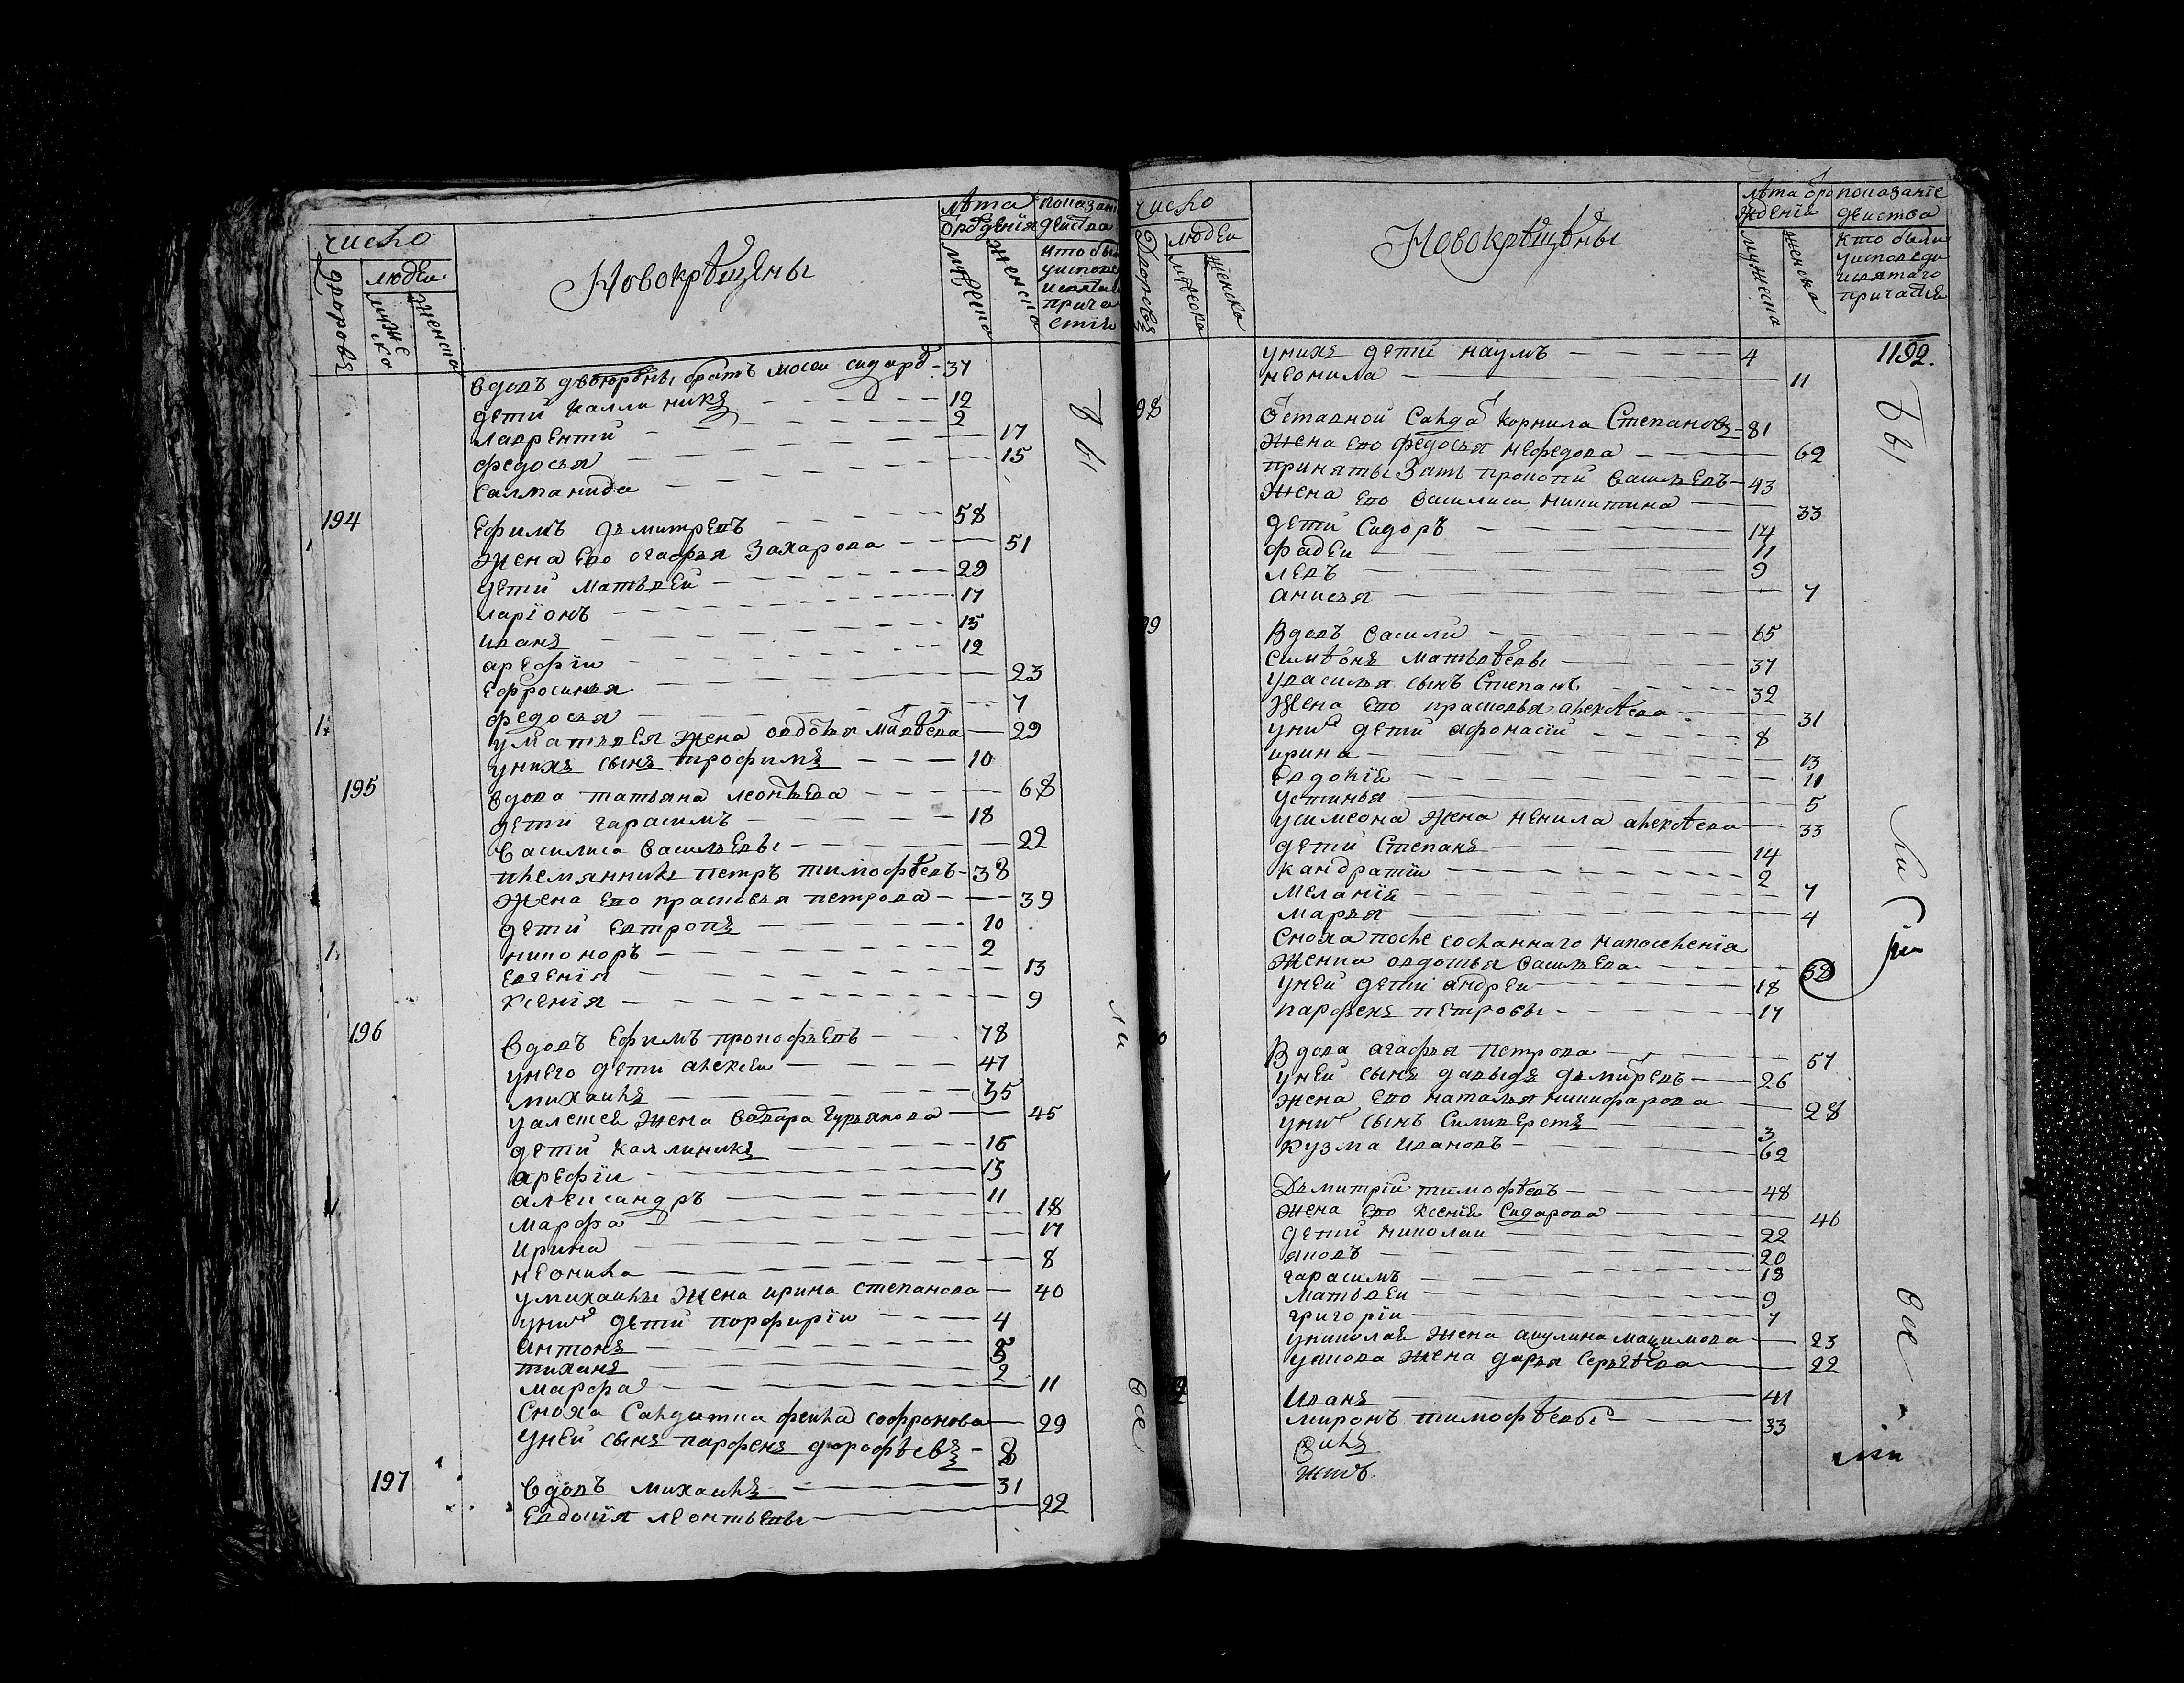 число
людеи
дворовъ
мужеско
женска
Новокрѣщены
лѣта
о рождения
мужеска
женска
показани
деиства
кто бы
причастия
вдовъ двоюродны братъ мосеи сидоро - 37
дети каллиникъ 12
лаврентии 2
федосья 17
салманида 15
194 Ефимъ дьмитревъ 58
жена ево огафья захарова 51
дети матьвеи 29
ларiонъ 17
иванъ 15
арефiи 12
ефросинья 23
федосья 7
уматьвея жена овдотья 29
унихъ сынъ трофимъ 10
195 вдова татьяна леонтьева 68
дети гарасимъ 18
василиса васильевы 22
племянникъ петръ тимофѣевъ 38
жена ево прасковья петрова 39
дети евтропъ 10
никоноръ 2
евгенiя 13
ксенiя 9
196 вдовъ ефимъ прокофьевъ 78
унего дети алексеи 47
михаилъ 35
уалексея жена варвара гурьянова 45
дети каллиникъ 16
арефiи 13
александръ 11
марфа 18
ирина 17
неонила 8
умихаилы жена ирина степанова 40
унихъ дети порфирiи 4
антонъ
тиханъ 2
марфа 11
сноха салдатка фекла софронова 29
унеи сынъ парфенъ дорофѣевъ - 8
197 вдовъ михаилъ 31
Евдокiя леонтьевы 22
ли
все
число
людеи
дворовъ
мужеска
женска
Новокрѣщѣны
лѣта о рождении
мужеска
женска
показанiе
деиства
кто были
уисповеди
исвятаго
причастия
1192.
унихъ дети наумъ 4
неонила 11
98 отставной салда корнила Степановъ 81
жена ево федосья нефедова 62
приняты зать прокопи васильевъ 43
жена ево василиса никитина 33
дети сидоръ 14
фадеи 11
левъ 9
анисья 7
99 Вдовъ васили 65
симѣонъ матьвѣевы 37
увасилья сынъ Степанъ 32
жена ево прасковья алексѣева 31
унихъ дети афонасии 8
ирина 13
евдокiя 11
устинья 5
усимеона жена ненила алексѣева 33
дети Степанъ 14
кандратiи 2
меланiя 7
марья 4
сноха после сосланнаго напоселенiя
женка овдотья васильева 38
унеи дети андреи 18
парфенъ петровы 17
Вдова агафья петрова 57
унеи сынъ давыдъ дьмитревъ 26
жена ево наталья никифарова 28
унихъ сынъ силиверстъ 3
кузма ивановъ 62
Дьмитрiи тимофѣевъ 48
жена ево ксенiя сидарова 46
дети николаи 22
яковъ 20
гарасимъ 18
матьвеи 9
григорiи 7
униколая жена акулина максимова 23
уякова жена дарья сергѣева 22
иванъ 41
миронъ тимофѣевы 33
все